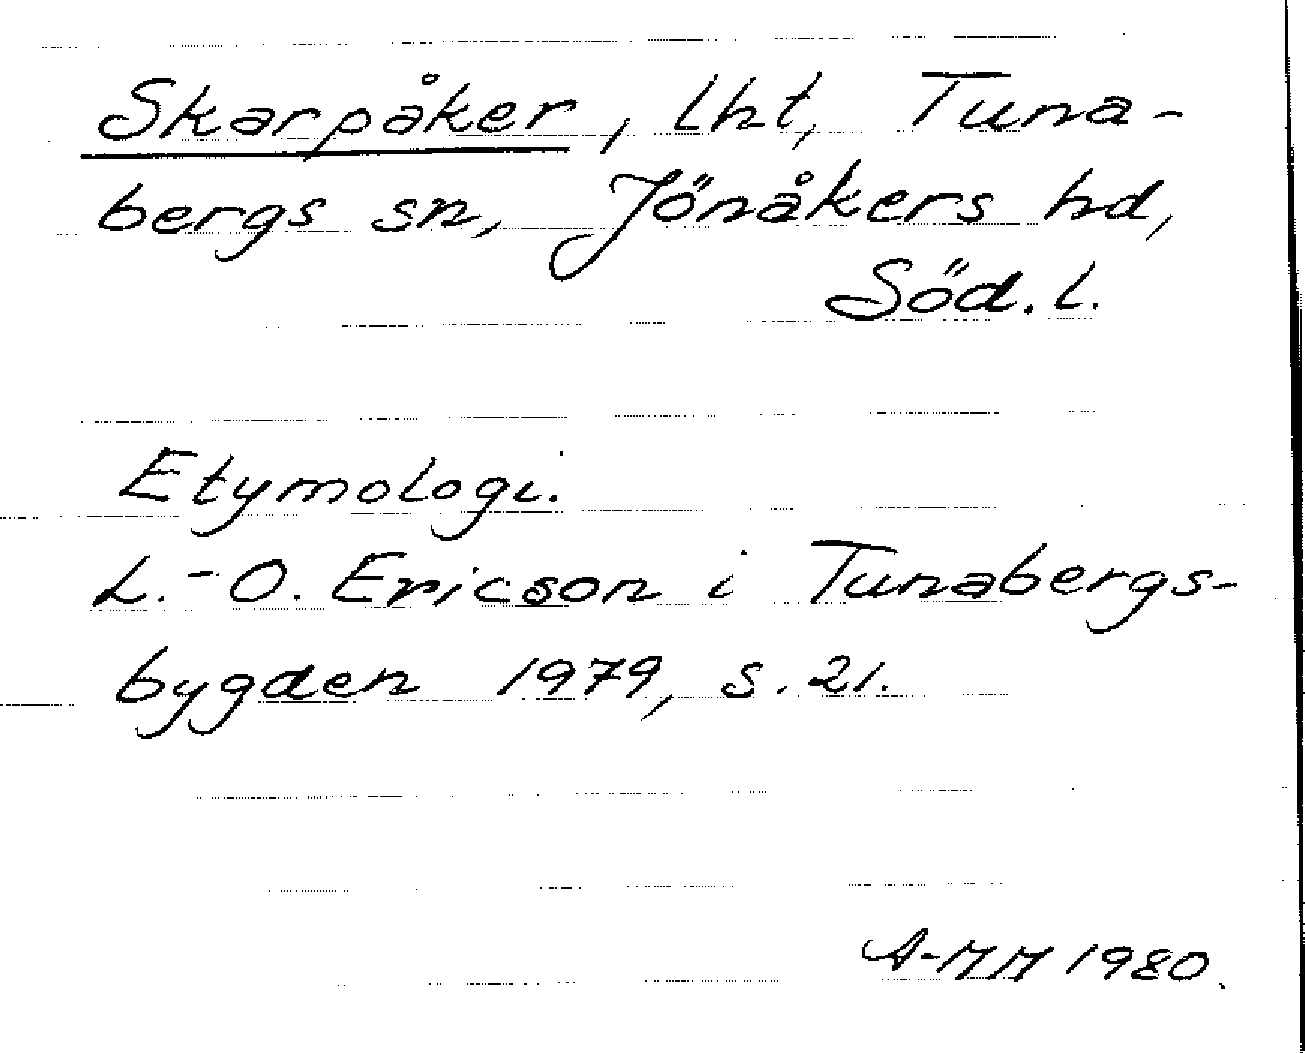 Skarpåker, lht, Tuna-
bergs sn, Jönåkers hd,
Söd. l.
Etymologi.
L.-O. Ericson i Tunabergs-
bygden 1979, s. 21.
A-MM 1980.